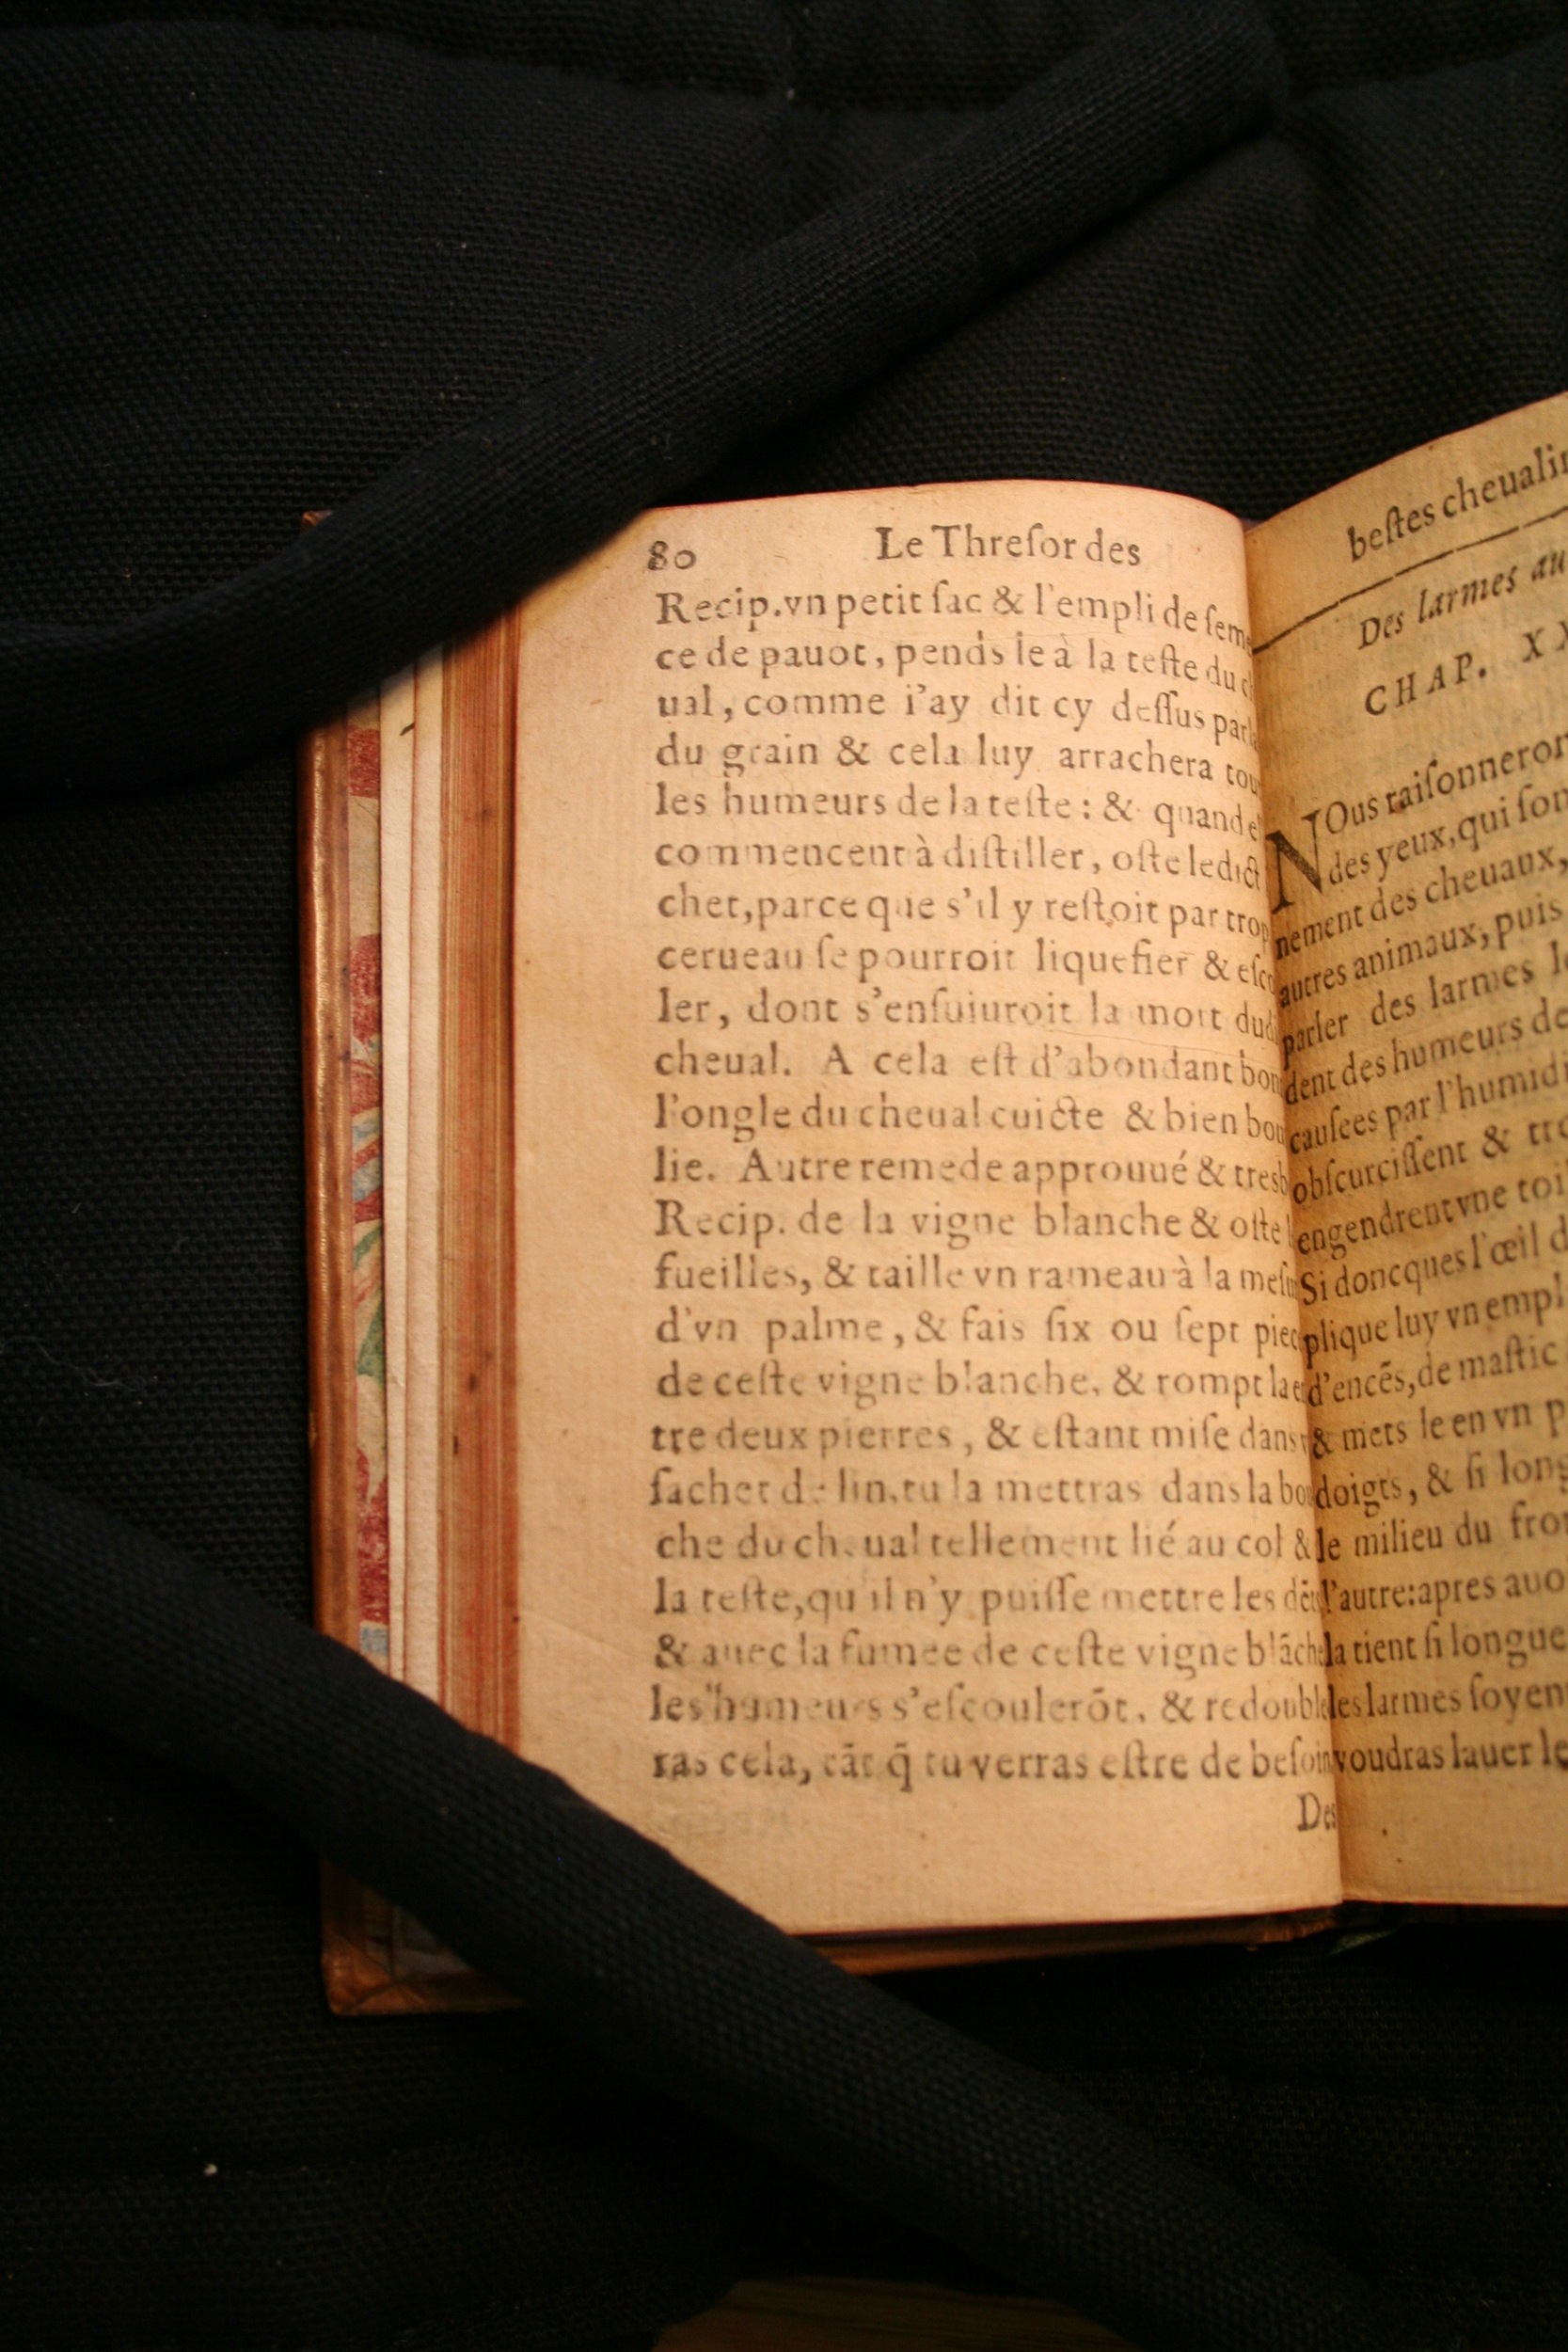 80 Le Threſor des
Recip. vn petit ſac & l'empli de ſeme
ce de pauot, pends le à la teſte du
ual, comme i'ay dit cy deſſus par
du grain & cela luy arrachera tou
les humeurs de la teſte : & quand
commencent à diſtiller, oſte ledict
chet, parce que s'il y reſtoit par trop
cerueau ſe pourroit liquefier & eſco
ler, dont s'enſuiuroit la mort dud
cheual. A cela eſt d'abondant bon
l'ongle du cheual cuicte & bien bou
lie. Autre remede approuué & tresb
Recip. de la vigne blanche & oſte
fueilles, & taille vn rameau à la meſu
d'vn palme, & fais ſix ou ſept piec
de ceſte vigne blanche, & rompt la e
tre deux pierres, & eſtant miſe dans
ſachet de lin, tu la mettras dans la bou
che du cheual tellement lié au col &
la teſte, qu'il n'y puiſſe mettre les dẽt
& auec la fumee de ceſte vigne blãche
les humeurs s'eſcoulerõt, & redouble
ras cela, tãt q̃ tu verras eſtre de beſoin
Des
beſtes cheualin
Des larmes au
CHAP. XX
NOus raiſonneron
des yeux, qui ſon
nement des cheuaux,
autres animaux, puis
parler des larmes
dent des humeurs de
cauſees par l'humidi
obſcurciſſent & tro
engendrent vne toil
Si doncques l'œil d
plique luy vn empl
d'encẽs, de maſtic
& mets le en vn p
doigts, & ſi long
le milieu du fron
l'autre: apres auo
la tient ſi longue
les larmes ſoyent
voudras lauer le